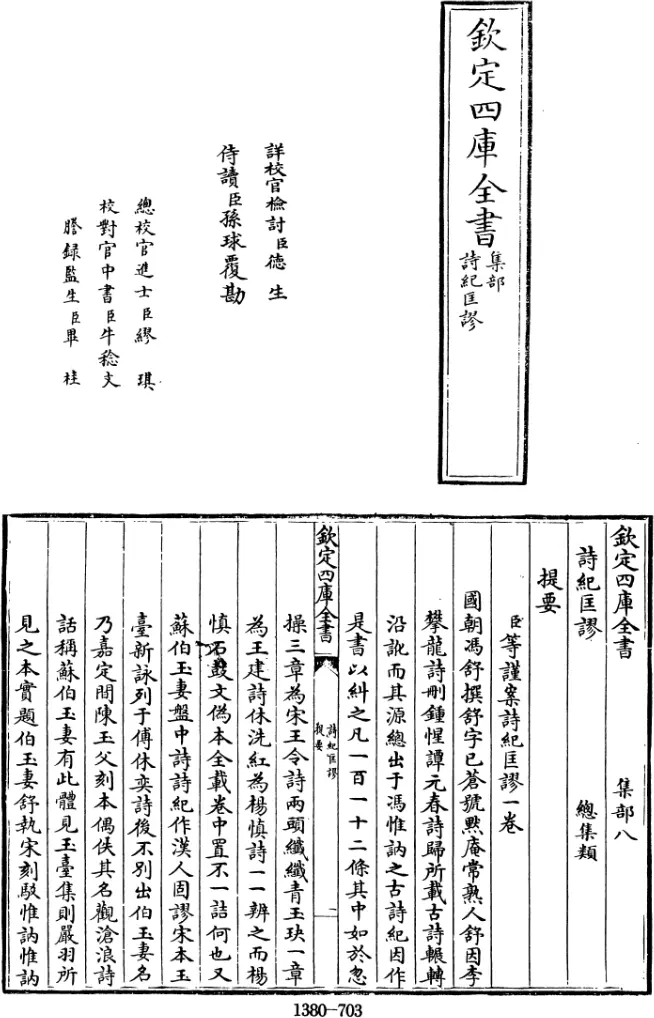 欽定四庫全書
集部
詩紀匡謬
詳校官檢討臣德生
侍讀臣孫球覆勘
總校官進士臣繆琪
校對官中書臣牛稔文
謄錄監生臣畢桂
欽定四庫全書
集部八
詩紀匡謬
總集類
提要
臣等謹案詩紀匡謬一卷
國朝馮舒撰舒字已蒼號默庵常熟人舒因李
攀龍詩刪鍾惺譚元春詩歸所載古詩輾轉
沿訛而其源總出于馮惟訥之古詩紀因作
是書以糾之凡一百一十二條其中如於忽
欽定四庫全書
詩紀匡謬
提要
一
操三章為宋王令詩兩頭纖纖青玉玦一章
為王建詩休洗紅為楊慎詩一一辨之而楊
慎石鼓文偽本全載卷中置不一詰何也又
蘇伯玉妻盤中詩詩紀作漢人固謬宋本玉
臺新詠列于傅休奕詩後不別出伯玉妻名
乃嘉定間陳玉父刻本偶佚其名觀滄浪詩
話稱蘇伯玉妻有此體見玉臺集則嚴羽所
見之本實題伯玉妻舒執宋刻駮惟訥惟訥
1380-703